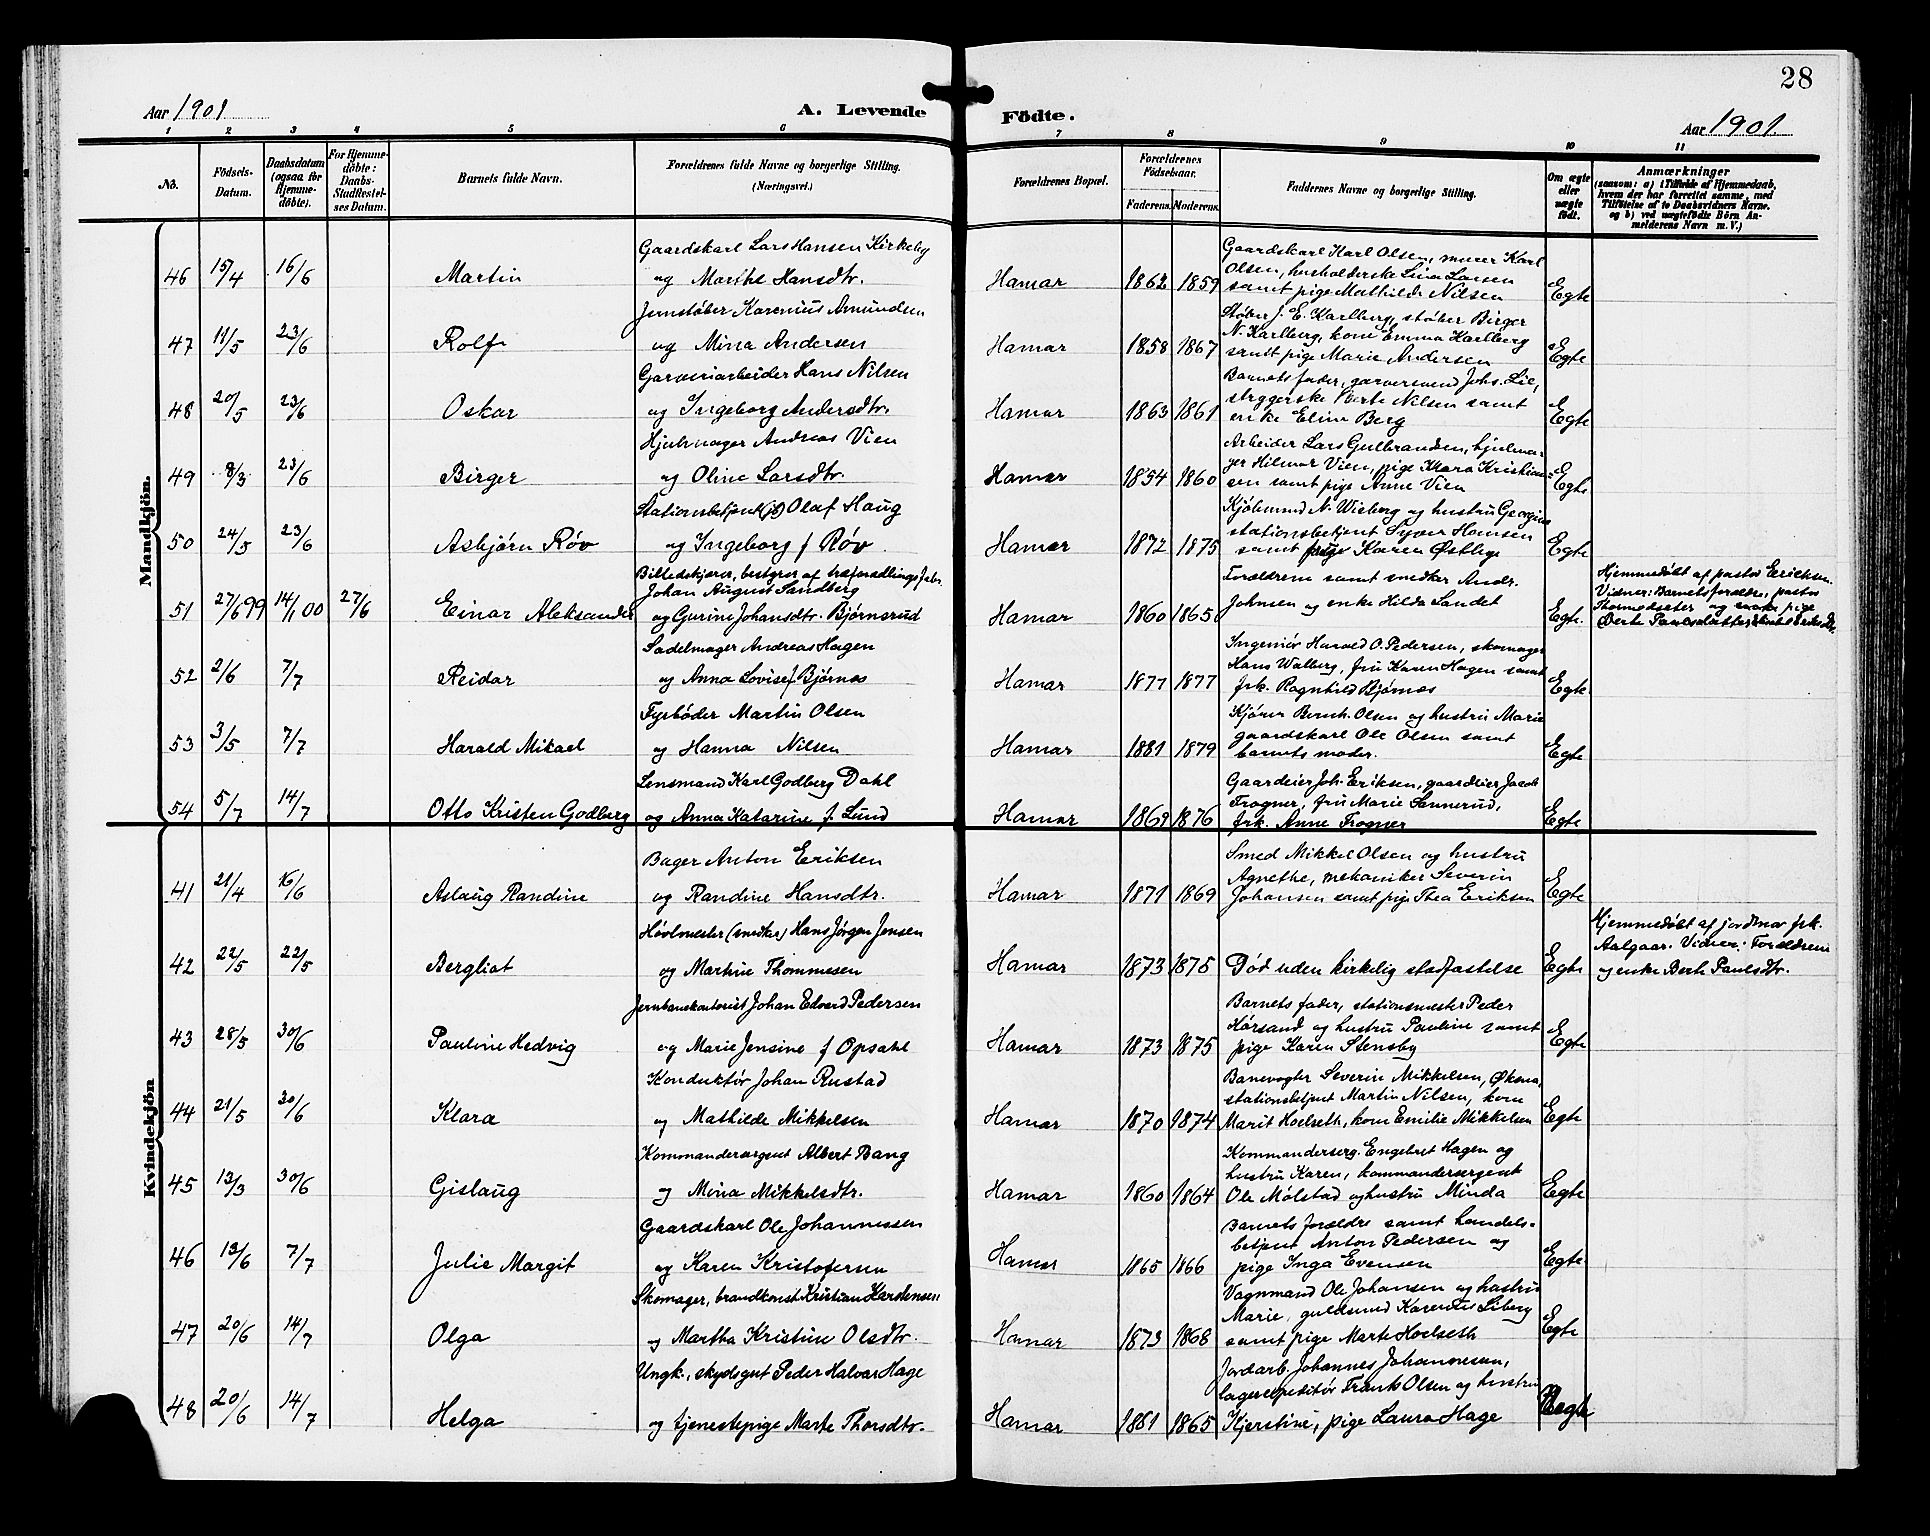 28
Aar 1901 A. Levende Födte. Aar 1901.
1 2 3 4 5 6 7 8 9 10 11
No. Födsels-Datum. Daabsdatum (ogsaa för Hjemme-döbte). For Hjemme-döbte: Daabs-Stadfæstel-ses Datum. Barnets fulde Navn. Forældrenes fulde Navne og borgerlige Stilling. (Næringsvei.) Forældrenes Bopæl. Forældrenes Födselsaar. Faderens. Moderens. Faddernes Navne og borgerlige Stilling. Om ægte eller uægte födt. Anmærkninger (saasom: a) i Tilfælde af Hjemmedaab, hvem der har forrettet samme, med Tilföielse af to Daabsvidners Navne, og b) ved uægtefödte Börn Anmelderens Navn m. V.)
Mandkjön.
Gaardskarl Lars Hansen Kirkeby Gaardskarl Karl Olsen, murer Karl
46 15/4 16/6 Martin og Marthe Hansdtr. Hamar 1862 1859 Olsen, husholderske Lina Larsen
samt pige Mathilde Nilsen Egte
Jernstøber Karenius Amundsen Støber J. E. Karlberg, støber Birger
47 11/5 23/6 Rolf og Mina Andersen Hamar 1858 1867 N. Karlberg, kone Emma Karlberg
samt pige Marie Andersen Egte
Garveriarbeider Hans Nilsen Barnets fader, garversvend Johs. Lie,
48 20/5 23/6 Oskar og Ingeborg Andersdtr. Hamar 1863 1861 strygerske Berte Nilsen samt
enke Eline Berg Egte
Hjulmager Andreas Vien Arbeider Lars Gulbrandsen, hjulma-
49 8/3 23/6 Birger og Oline Larsdtr. Hamar 1854 1860 ger Hilmar Vien, pige Klara Kristian-
sen samt pige Anne Vien Egte
Stationsbetjent (jb) Olaf Haug Kjøbmand N. Wieberg og hustru Georgine
50 24/5 23/6 Asbjørn Røv og Ingeborg f Røv. Hamar 1872 1875 stationsbetjent Syver Hansen
samt pige Karen Østlye Egte
Billedskjærer, bestyrer af træforædlings fabr.
51 27/6 99 14/1 00 27/6 Einar Aleksander Johan August Sandberg
og Gurine Johansdtr. Bjørnsrud Hamar 1860 1865 Forældrene samt snedker Andr.
Johnsen og enke Hilda Sandet Egte.
Hjemmedøbt af pastor Erichsen.
Vidner: Barnets forældre, pastor
Thormodsæter og pige
Berte Paulsdatter
Sadelmager Andreas Hagen Ingeniør Harald O. Pedersen, skomager
52 2/6 7/7 Reidar og Anna Lovise f Bjørnæs Hamar 1877 1877 Hans Walberg, fru Karen Hagen samt
frk. Ragnhild Bjørnæs Egte
Fyrbøder Martin Olsen Kjører Bernh. Olsen og hustru Marie
53 3/5 7/7 Harald Mikael og Hanna Nilsen Hamar 1881 1879 gaardskarl Ole Olsen samt
barnets moder. Egte
Lensmand Karl Godberg Dahl Gaardeier Joh. Eriksen, gaardeier Jacob
54 5/7 14/7 Otto Kristen Godberg og Anna Katarine f. Lund Hamar 1869 1876 Frogner, fru Marie Sannerud,
frk. Anne Frogner Egte
Kvindekjön
Bager Anton Eriksen Smed Mikkel Olsen og hustru
41 21/4 16/6 Aslaug Randine og Randine Hansdtr. Hamar 1871 1869 Agnethe, mekaniker Severin
Johansen samt pige Thea Eriksen Egte
Høvlmester (snedker) Hans Jørgen Jensen
42 22/5 22/5 Bergliot og Martine Thommesen Hamar 1873 1875 Død uden kirkelig stadfæstelse Egte
Hjemmedøbt af jordmor frk.
Aalgaar. Vidner: Forældrene
og enke Berte Paulsdtr.
Jernbanekontorist Johan Edvard Pedersen Barnets fader, stationsmester Peder
43 28/5 30/6 Pauline Hedvig og Marie Jensine f Opsahl Hamar 1873 1875 Korsand og hustru Pauline samt
pige Karen Stensby Egte
Konduktør Johan Rustad Banevogter Severin Mikkelsen, Øksna,
44 21/5 30/6 Klara og Mathilde Mikkelsen Hamar 1870 1874 stationsbetjent Martin Nilsen, kone
Marit Hoelseth, kone Emilie Mikkelsen Egte
Kommandersergent Albert Bang Kommanderserg. Engebret Hagen og
45 13/3 30/6 Gislaug og Mina Mikkelsdtr. Hamar 1860 1864 hustru Karen, kommandersergent
Ole Mølstad og hustru Minda Egte
Gaardskarl Ole Johannessen Barnets forældre samt handels-
46 13/6 7/7 Julie Margit og Karen Kristofersen Hamar 1865 1866 betjent Anton Pedersen og
pige Inga Evensen Egte.
Skomager, brandkonst Kristian Karstensen Vognmand Ole Johansen og hustru
47 20/6 14/7 Olga og Martha Kristine Olsdtr. Hamar 1873 1868 Marie, guldsmed Karenius Liberg
samt pige Marte Hoelseth Egte
Ungk., skydsgut Peder Halvor Hage Jordarb. Johannes Johannesen,
48 20/6 14/7 Helga og tjenestepige Marte Thorsdtr. Hamar 1881 1865 lagerexpeditør Frants Olsen og hustru
Kjerstine, pige Laura Hage Uegte